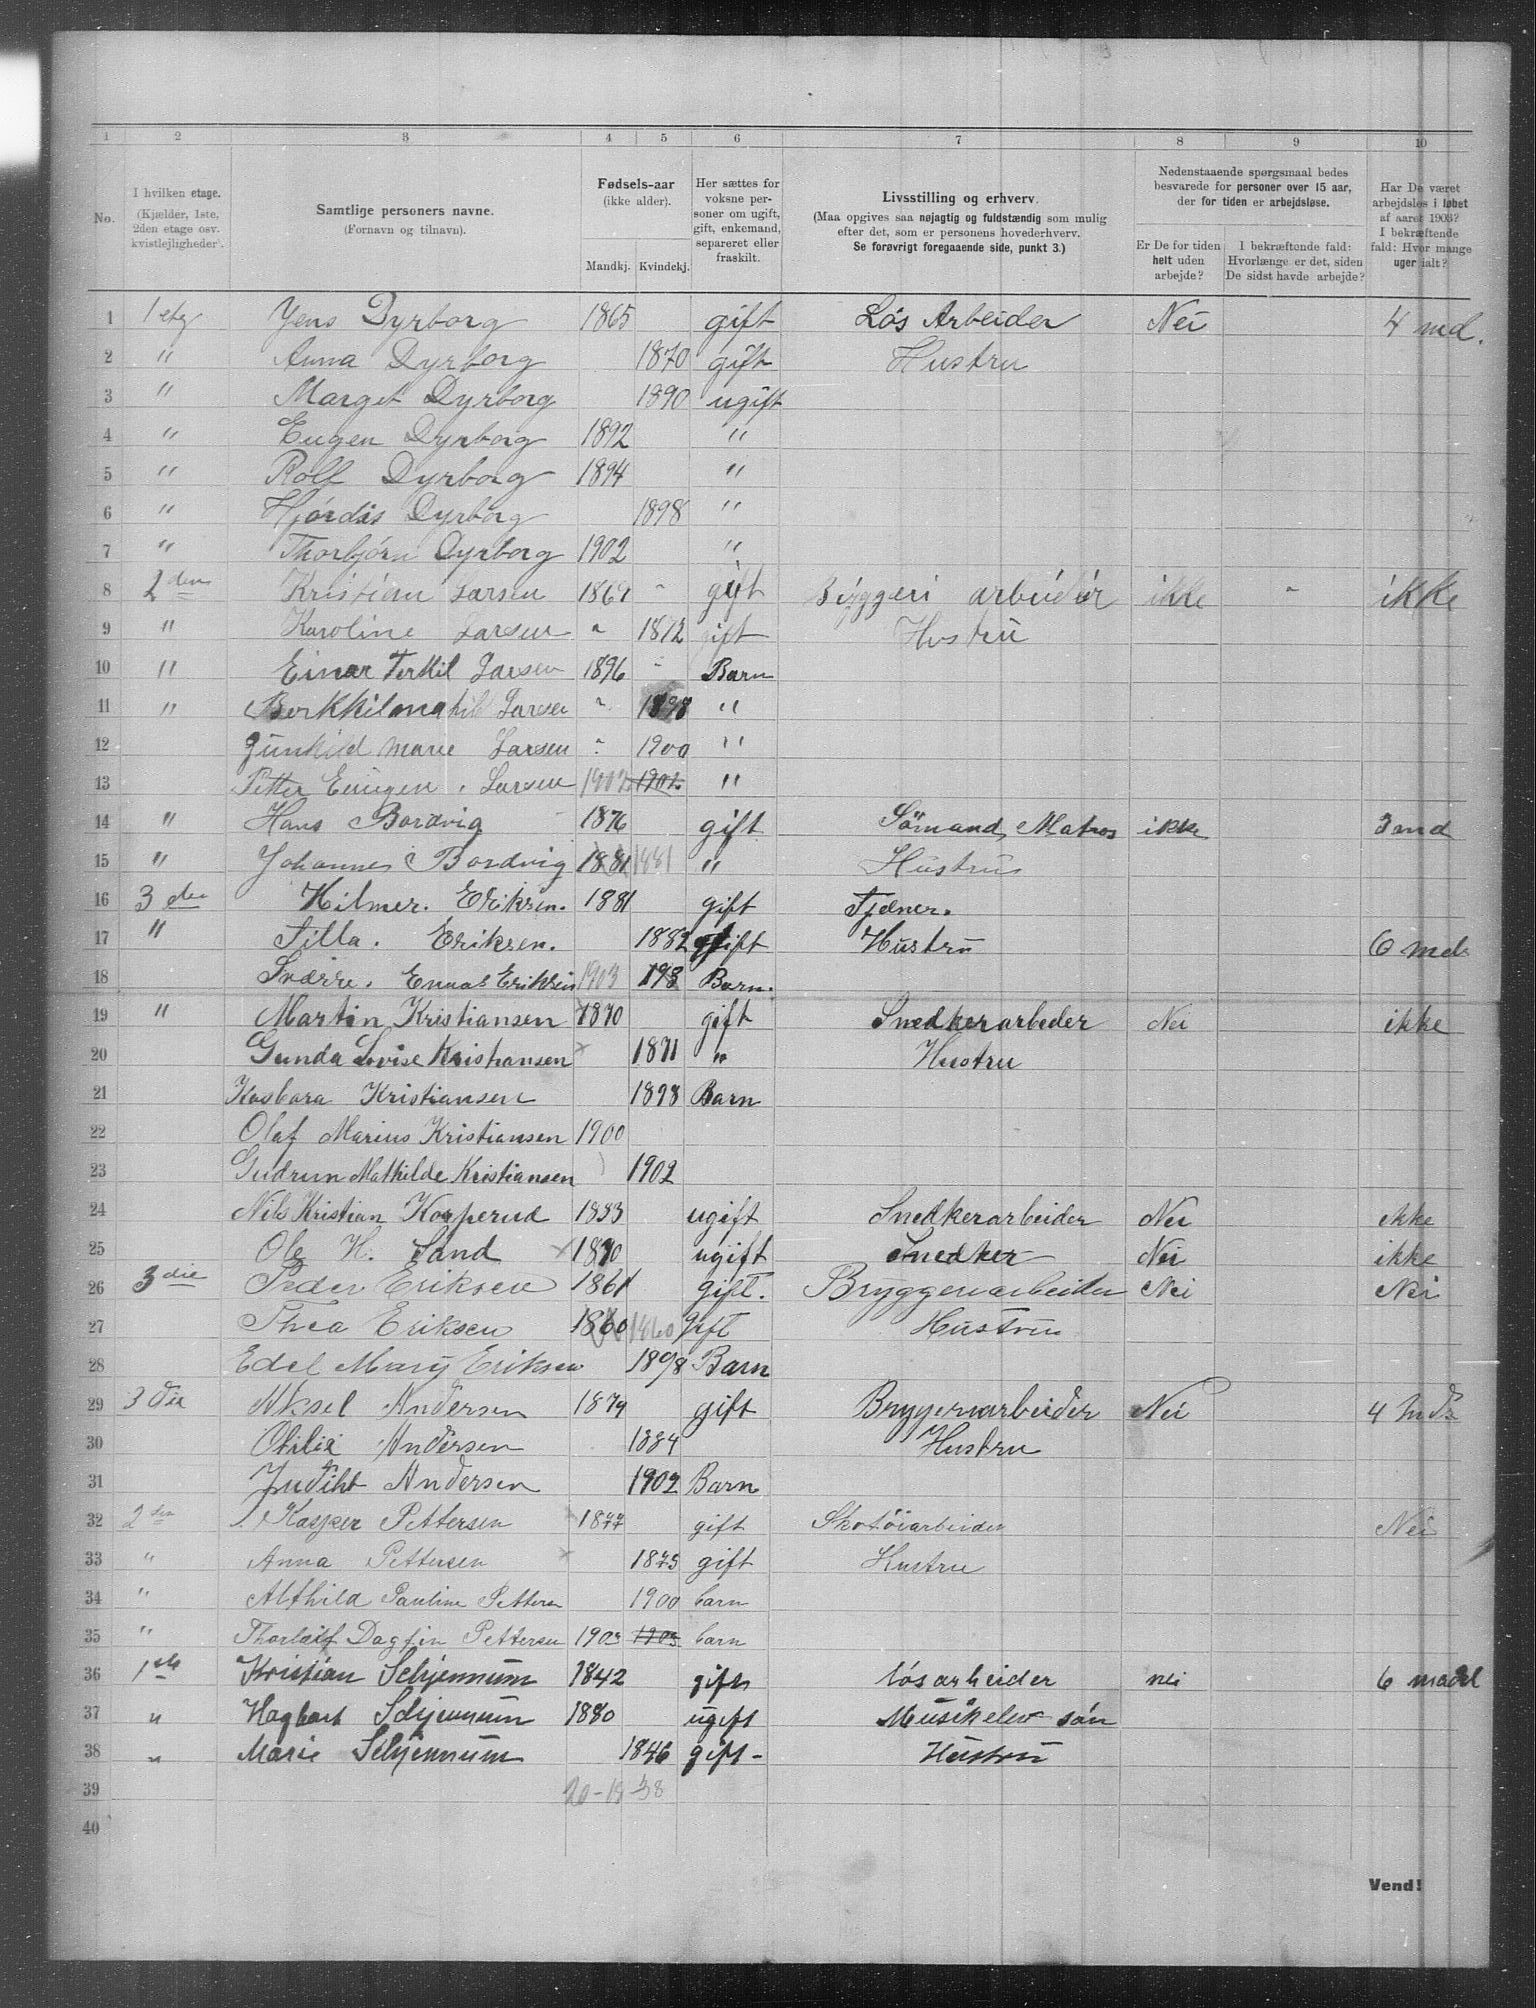 1 2 3 4 5 6 7 8 9 10
No. I hvilken etage. (Kjælder, 1ste, 2den etage osv. kvistlejligheder). Samtlige personers navne. (Fornavn og tilnavn). Fødsels-aar (ikke alder). Mandkj. Kvindekj. Her sættes for voksne personer om ugift, gift, enkemand, separeret eller fraskilt. Livsstilling og erhverv. (Maa opgives saa nøjagtig og fuldstændig som mulig efter det, som er personens hovederhverv. Se forøvrigt foregaaende side, punkt 3.) Nedenstaaende spørgsmaal bedes besvarede for personer over 15 aar, der for tiden er arbejdsløse. Er De for tiden helt uden arbejde? I bekræftende fald: Hvorlænge er det, siden De sidst havde arbejde? Har De været arbejdsløs i løbet af aaret 1903? I bekræftende fald: Hvor mange uger ialt?
1 1 etg Jens Dyrborg 1865 gift Løs Arbeider Nei 4 md.
2 " Anna Dyrborg 1870 gift Hustru
3 " Marget Dyrborg 1890 ugift
4 " Eugen Dyrborg 1892 "
5 " Rolf Dyrborg 1894 "
6 " Hjørdis Dyrborg 1898 "
7 " Thorbjørn Dyrborg 1902 "
8 2den Kristian Larsen 1869 " gift Bryggeri arbeider ikke " ikke
9 " Karoline Larsen " 1872 gift Hustru
10 " Einar Terkil Larsen 1896 " Barn
11 " Larsen " 1898 "
12 Gunhild Marie Larsen " 1900 "
13 Petter Eugen Larsen 1902 1902 "
14 " Hans Bordvig 1876 gift Sømand, Matros ikke 3 md
15 " Johannes Bordvig 1881 1881 " Hustru
16 3die Hilmer. Eriksen. 1881 gift Tjener.
17 " Silla. Eriksen. 1882 gift Hustru 6 md
18 Sverre. Eriksen 1903 Barn.
19 " Martin Kristiansen 1870 gift Snedkerarbeder Nei ikke
20 Gunda Lovise Kristiansen 1871 " Hustru
21 Kasbara Kristiansen 1898 Barn
22 Olaf Marius Kristiansen 1900
23 Gudrun Mathilde Kristiansen 1902
24 Nils Kristian Korperud 1883 ugift Snedkerarbeider Nei ikke
25 Ole H. Sand 1870 ugift Snedker Nei ikke
26 3die Peder Eriksen 1861 gift. Bryggeriarbeider Nei Nei
27 Thea Eriksen 1860 1860 Gift Hustru
28 Edel Mary Eriksen 1898 Barn
29 3die Aksel Andersen 1879 gift Bryggeriarbeider Nei 4 Mds
30 Otilie Andersen 1884 Hustru
31 Judiht Andersen 1902 Barn
32 2den Kasper Pettersen 1877 gift Skotøiarbeider Nei
33 " Anna Pettersen 1875 gift Hustru
34 " Althild Pauline Pettersen 1900 barn
35 " Thorleif Dagfin Pettersen 1903 1903 barn
36 1ste Kristian Schjennum 1842 gift løsarbeider nei 6 maaned
37 " Hagbart Schjennum 1880 ugift Musikelev søn
38 " Marie Schjennum 1846 gift - Hustru
39 20-18-38
40
Vend!